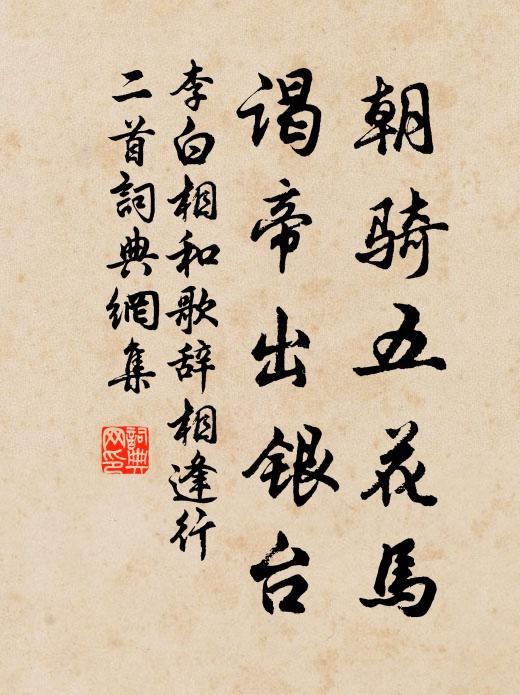 朝骑五花馬
谒帝出银台
李白相和歌辞相逢行
二首詞典網集
詞典
网印